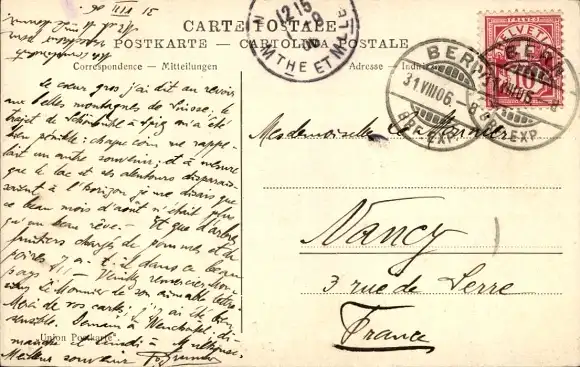 31 VIII 06
CARTE POSTALE
POSTKARTE — CARTOLINA POSTALE
Correspondence — Mitteilungen
Adresse —
HELVETIA
FRANCO
10
12 15
MTHE ET MLLE
BERN
31.VIII.06. — 8
BRF. EXP.
BERN
BRF. EXP.
Le cœur gros, j'ai dit au revoir
aux belles montagnes de Suisse, le
trajet de à Spiez m'a été
bien pénible: chaque coin me rappe-
lait un autre souvenir, et à mesure
que le lac et ses alentours disparais-
saient à l'horizon je me disais que
ce beau mois d'août n'était plus
qu'un beau rêve. — Et que d'arbres
fruitiers chargés de pommes et de
poires y a-t-il dans ce beau
pays !!! — Veuillez remercier Mon-
sieur Le Monnier de son aimable lettre
Merci de vos cartes, j'y ai été bien
sensible. Demain à di-
manche et lundi à
Meilleur souvenir
Mesdemoiselles Le Monnier
Nancy
3 rue de Serre
France
Union Postkarte